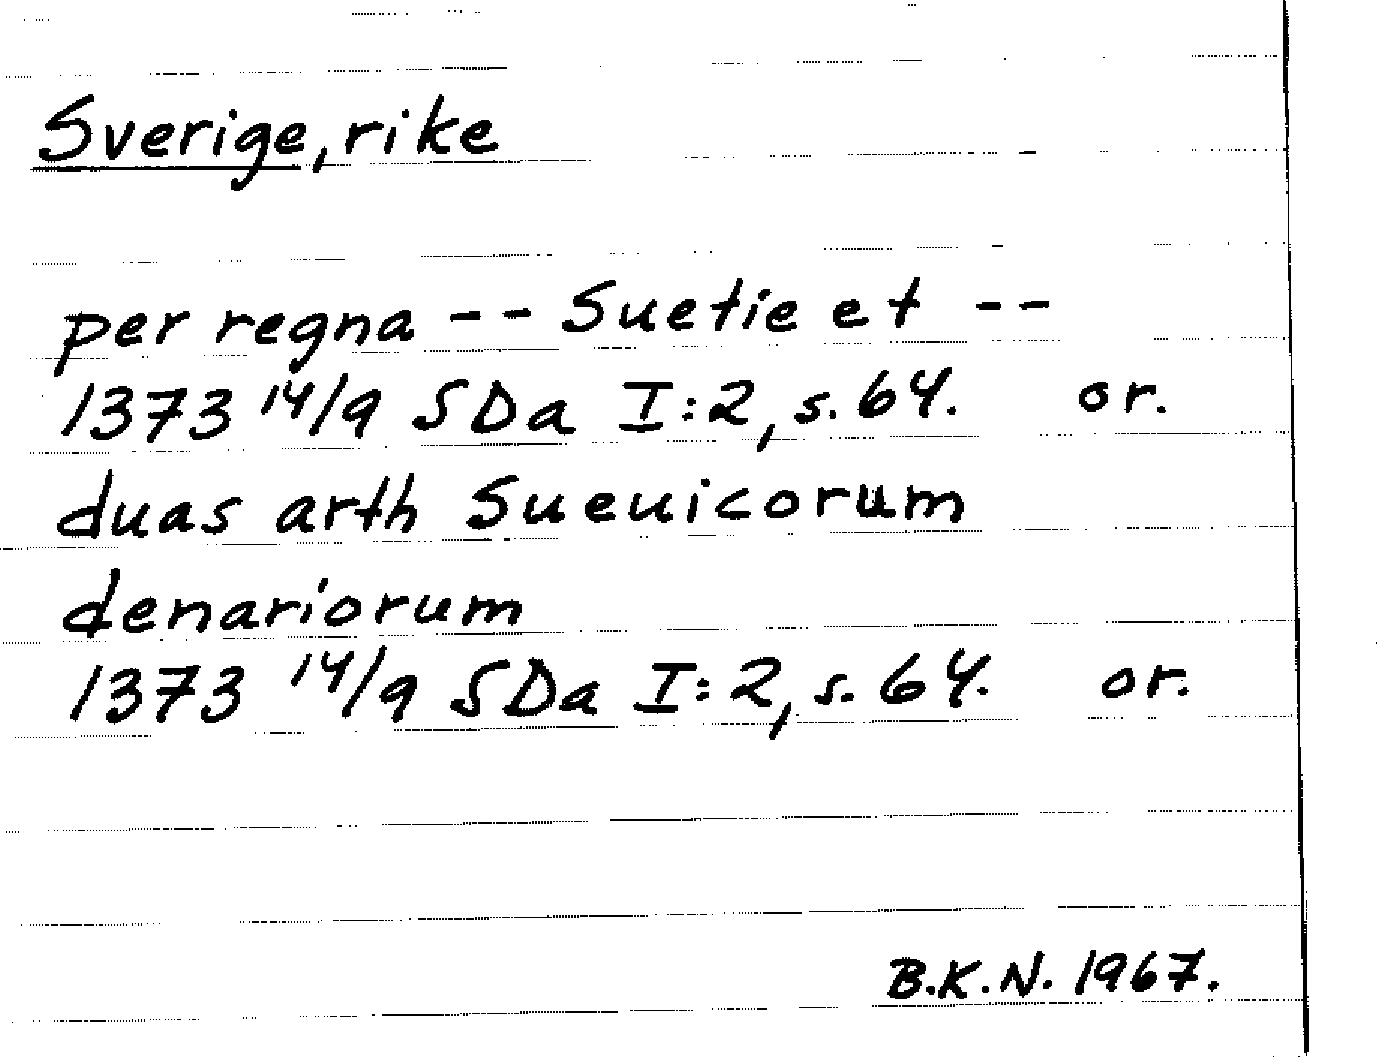 Sverige, rike
per regna -- Suetie et --
1373 14/9 SDa I:2, s. 64. or.
duas arth Sueuicorum
denariorum
1373 14/9 SDa I:2, s. 64. or.
B.K.N. 1967.